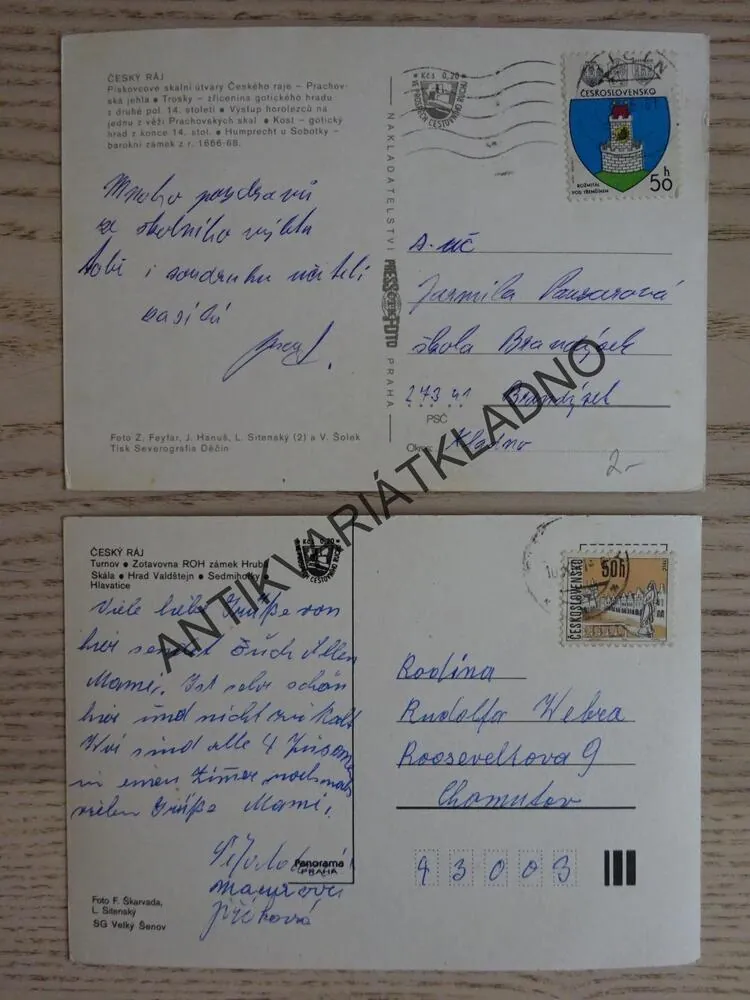 ČESKÝ RÁJ
Pískovcové skalní útvary Českého ráje – Prachov-
ská jehla • Trosky – zřícenina gotického hradu
z druhé pol. 14. století • Výstup horolezců na
jednu z věží Prachovských skal • Kost – gotický
hrad z konce 14. stol. • Humprecht u Sobotky –
barokní zámek z r. 1666-68.
Kčs 0,20
ČESKOSLOVENSKO
ROŽMITÁL
POD TŘEMŠÍNEM
50 h
Mnoho pozdravů
ze školního výletu
Tobě i soudruhu učiteli
NAKLADATELSTVÍ
PRESSFOTO
PRAHA
s. uč
Jarmila
škola Brandýsek
273 41 Brandýsek
PSČ
Okres Kladno
2,-
Foto Z. Feyfar, J. Hanuš, L. Sitenský (2) a V. Šolek
Tisk Severografia Děčín
ANTIKVARIÁTKLADNO
ČESKÝ RÁJ
Turnov • Zotavovna ROH zámek Hrubá
Skála • Hrad Valdštejn • Sedmihorky •
Hlavatice
Kčs 0,20
ČESKOSLOVENSKO
50h
Viele liebe Grüße von
hier sendet Euch Allen
Mami. Ist sehr schön
hier und nicht zu kalt
Wir sind alle 4
in einen Zimer nochmals
vielen Grüße Mami.
Macurová
Jiříková
Panorama
PRAHA
Rodina
Rudolfa Webra
Rooseveltova 9
Chomutov
43003
Foto F. Škarvada,
L. Sitenský
SG Velký Šenov